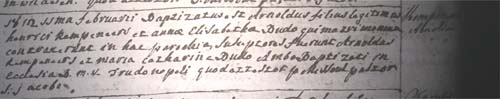 februarii Baptizatus est Arnoldus filius legitimus
henrici kempeners et annæ Elisabetha Dudo qui matrimonium
contraxerunt in hac parochia, Susceptores fuerunt Arnoldus
kempeners et maria catharina Dudo ambo Baptizati in
Ecclesia B. m. v. Trudonopoli quod attestor pastor
s. jacobi